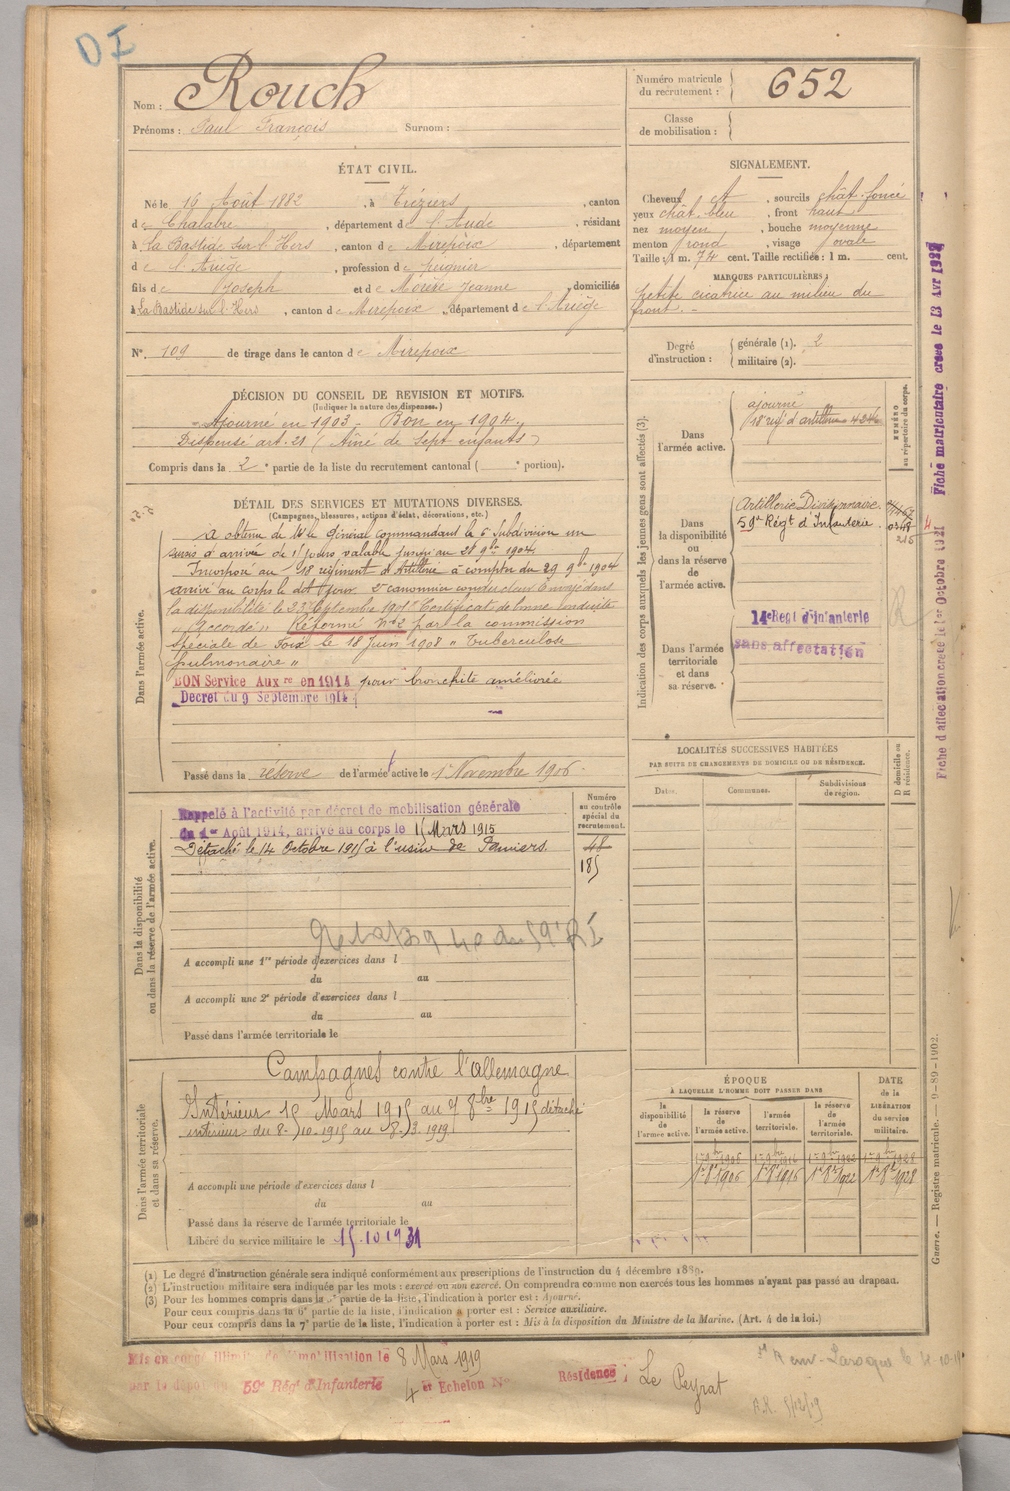 DI
Nom : Rouch
Prénoms : Paul François Surnom :
Numéro matricule du recrutement : 652
Classe de mobilisation :
ÉTAT CIVIL.
Né le 16 Août 1882, à Tréziers, canton
de Chalabre, département de l'Aude, résidant
à la Bastide sur l'Hers, canton de Mirepoix, département
de l'Ariège, profession de peignier
fils de Joseph et de Jeanne, domiciliés
à La Bastide sur l'Hers, canton de Mirepoix, département de l'Ariège
N° 109 de tirage dans le canton de Mirepoix
SIGNALEMENT.
Cheveux et, sourcils chât. foncé
yeux chât. bleu, front haut
nez moyen, bouche moyenne
menton rond, visage ovale
Taille : 1 m. 74 cent. Taille rectifiée : 1 m. cent.
MARQUES PARTICULIÈRES :
petite cicatrice au milieu du
front. -
Degré d'instruction : générale (1). 2
militaire (2).
DÉCISION DU CONSEIL DE REVISION ET MOTIFS.
(Indiquer la nature des dispenses.)
Ajourné en 1903 - Bon en 1904.
Dispensé art. 21 (Aîné de sept enfants)
Compris dans la 2e partie de la liste du recrutement cantonal ( e portion).
DÉTAIL DES SERVICES ET MUTATIONS DIVERSES.
(Campagnes, blessures, actions d'éclat, décorations, etc.)
Dans l'armée active.
A obtenu de Mr le Général commandant la 6e Subdivision un
sursis d'arrivée de jours valable jusqu'au 28 9bre 1904.
Incorporé au 18e régiment d'Artillerie à compter du 29 9bre 1904
arrivé au corps le dit jour 2e canonnier conducteur Envoyé dans
la disponibilité le 23 Septembre 1905 Certificat de bonne conduite
"Accordé" Réformé N° 2 par la commission
spéciale de Foix le 18 Juin 1908 "Tuberculose
pulmonaire"
BON Service Auxre en 1914 pour bronchite améliorée
Decret du 9 Septembre 1914
Passé dans la réserve de l'armée active le 1er Novembre 1906.
Indication des corps auxquels les jeunes gens sont affectés (3).
NUMÉRO au répertoire du corps.
Dans l'armée active.
ajourné
18e rég' d'artillerie 424
Dans la disponibilité ou dans la réserve de l'armée active.
Artillerie Divisionnaire
59e Régt d'Infanterie.
215
Dans l'armée territoriale et dans sa réserve.
14e Regt d'Infanterie
sans affectation
Dans la disponibilité ou dans la réserve de l'armée active.
Numéro au contrôle spécial du recrutement.
48
185
Rappelé à l'activité par décret de mobilisation générale
du 1er Août 1914, arrivé au corps le 15 Mars 1915
Détaché le 14 Octobre 1915 à l'usine de Pamiers.
A accompli une 1re période d'exercices dans l
du au
A accompli une 2e période d'exercices dans l
du au
Passé dans l'armée territoriale le
LOCALITÉS SUCCESSIVES HABITÉES
PAR SUITE DE CHANGEMENTS DE DOMICILE OU DE RÉSIDENCE.
Dates. Communes. Subdivisions de région. D domicile ou R résidence.
Dans l'armée territoriale et dans sa réserve.
Campagnes contre l'allemagne
Intérieur 15 Mars 1915 au 7 8bre 1915 détaché
intérieur du 8-10-1915 au 8.3.1919.
A accompli une période d'exercices dans l
du au
Passé dans la réserve de l'armée territoriale le
Libéré du service militaire le 15.10 1931
ÉPOQUE
À LAQUELLE L'HOMME DOIT PASSER DANS
la disponibilité de l'armée active. la réserve de l'armée active. l'armée territoriale. la réserve de l'armée territoriale. DATE de la LIBÉRATION du service militaire.
1er 9bre 1906 1er 9bre 1916 1er 9bre 1922 1er 9bre 1928
1er 8bre 1906 1er 8bre 1916 1er 8bre 1922 1er 8bre 1928
(1) Le degré d'instruction générale sera indiqué conformément aux prescriptions de l'instruction du 4 décembre 1889.
(2) L'instruction militaire sera indiquée par les mots : exercé ou non exercé. On comprendra comme non exercés tous les hommes n'ayant pas passé au drapeau.
(3) Pour les hommes compris dans la partie de la liste, l'indication à porter est : Ajourné.
Pour ceux compris dans la 6e partie de la liste, l'indication à porter est : Service auxiliaire.
Pour ceux compris dans la 7e partie de la liste, l'indication à porter est : Mis à la disposition du Ministre de la Marine. (Art. 4 de la loi.)
Mis en congé illimité de démobilisation le 8 Mars 1919
par le dépôt du 59e Régt d'Infanterie 4er Echelon N° Résidence : Le Peyrat
Fiche d'affectation créée le 1er Octobre 1921
Fiche matriculaire créée le 13 Avr
Guerre. — Registre matricule. — 9-89-1902.